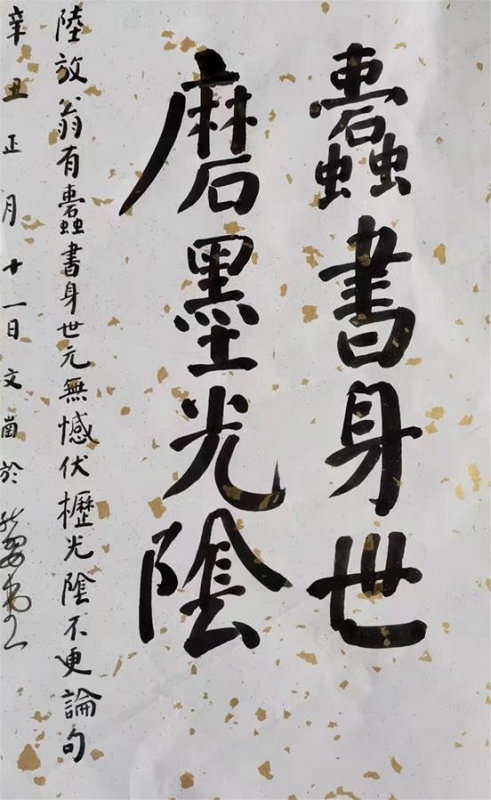 蠹書身世
磨墨光陰
陸放翁有蠹書身世元無憾伏櫪光陰不更論句
辛丑正月十一日文啚於